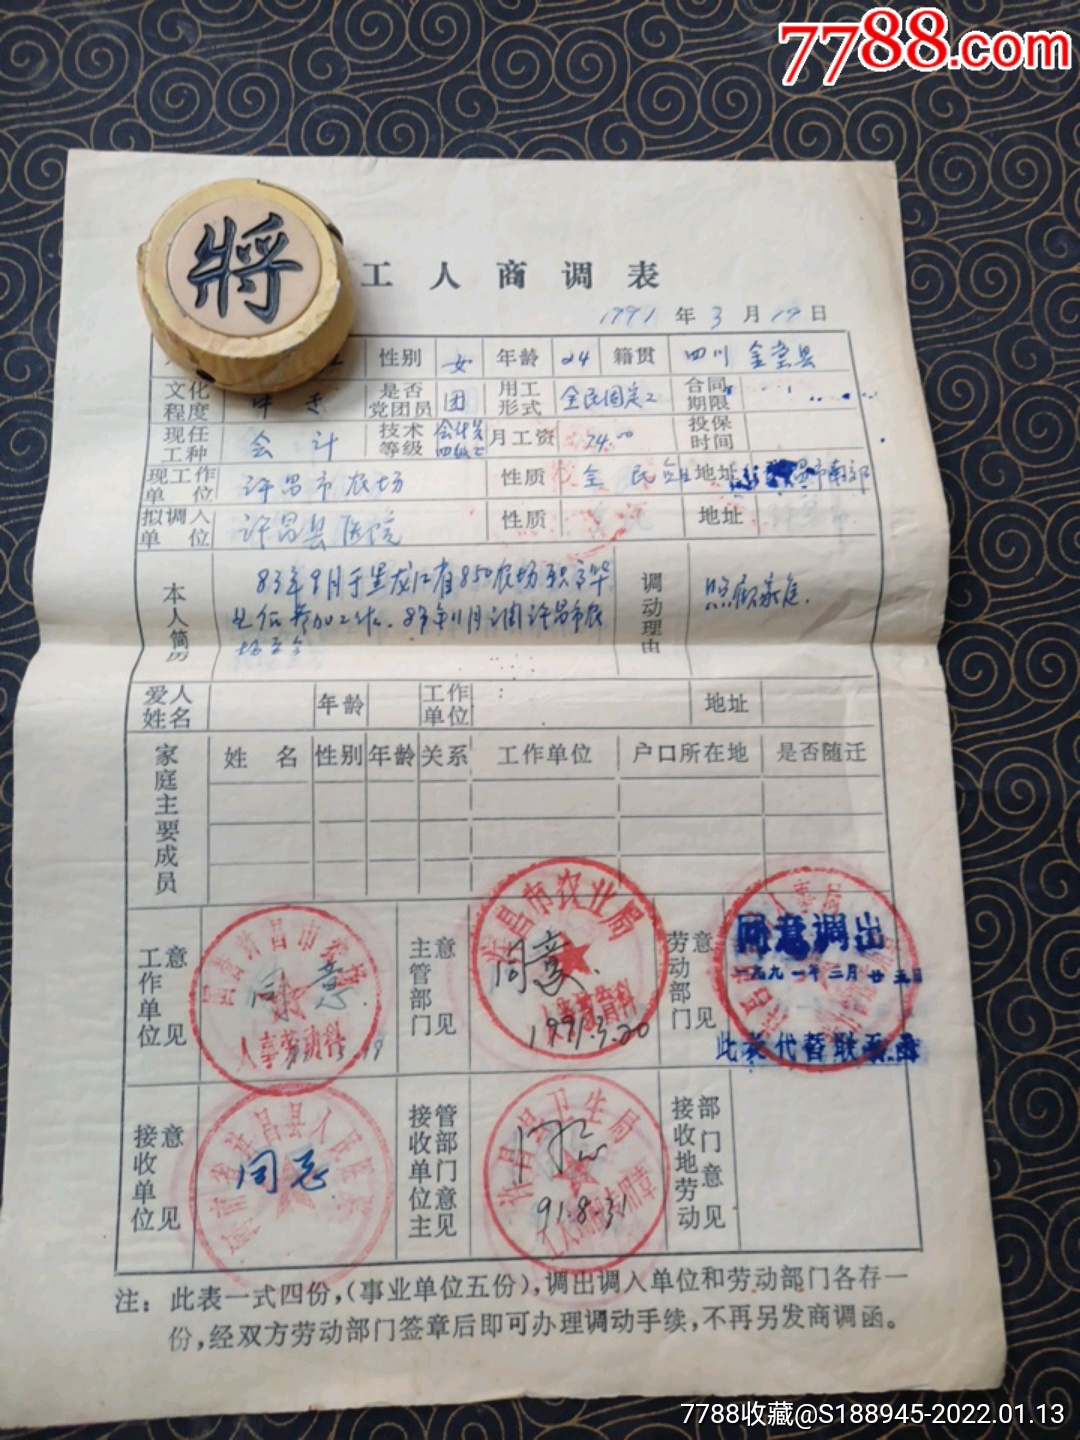 7788.com
將
工人商调表
1991年3月19日
性别 女 年龄 24 籍贯 四川 金堂县
文化程度 中专 是否党团员 团 用工形式 全民固定工 合同期限
现任工种 会计 技术等级 月工资 74.00 投保时间
现工作单位 许昌市农场 性质 全民 地址
拟调入单位 许昌县医院 性质 地址
本人简历
83年9月于黑龙江省850农场
参加工作.
11月调许昌市农
场至今
调动理由 照顾家庭.
爱人姓名 年龄 工作单位 地址
家庭主要成员 姓名 性别 年龄 关系 工作单位 户口所在地 是否随迁
工作单位意见 同意
人事劳动科
主管部门意见 许昌市农业局 同意.
人事教育科
1991.3.20
劳动部门意见 同意调出
一九九一年三月廿五日
此表代替联系函
接收单位意见 河南省许昌县人民医院 同意
接收单位主管部门意见 许昌县卫生局
91.8.31
接收地劳动部门意见
注：此表一式四份，(事业单位五份)，调出调入单位和劳动部门各存一
份，经双方劳动部门签章后即可办理调动手续，不再另发商调函。
7788收藏@S188945-2022.01.13